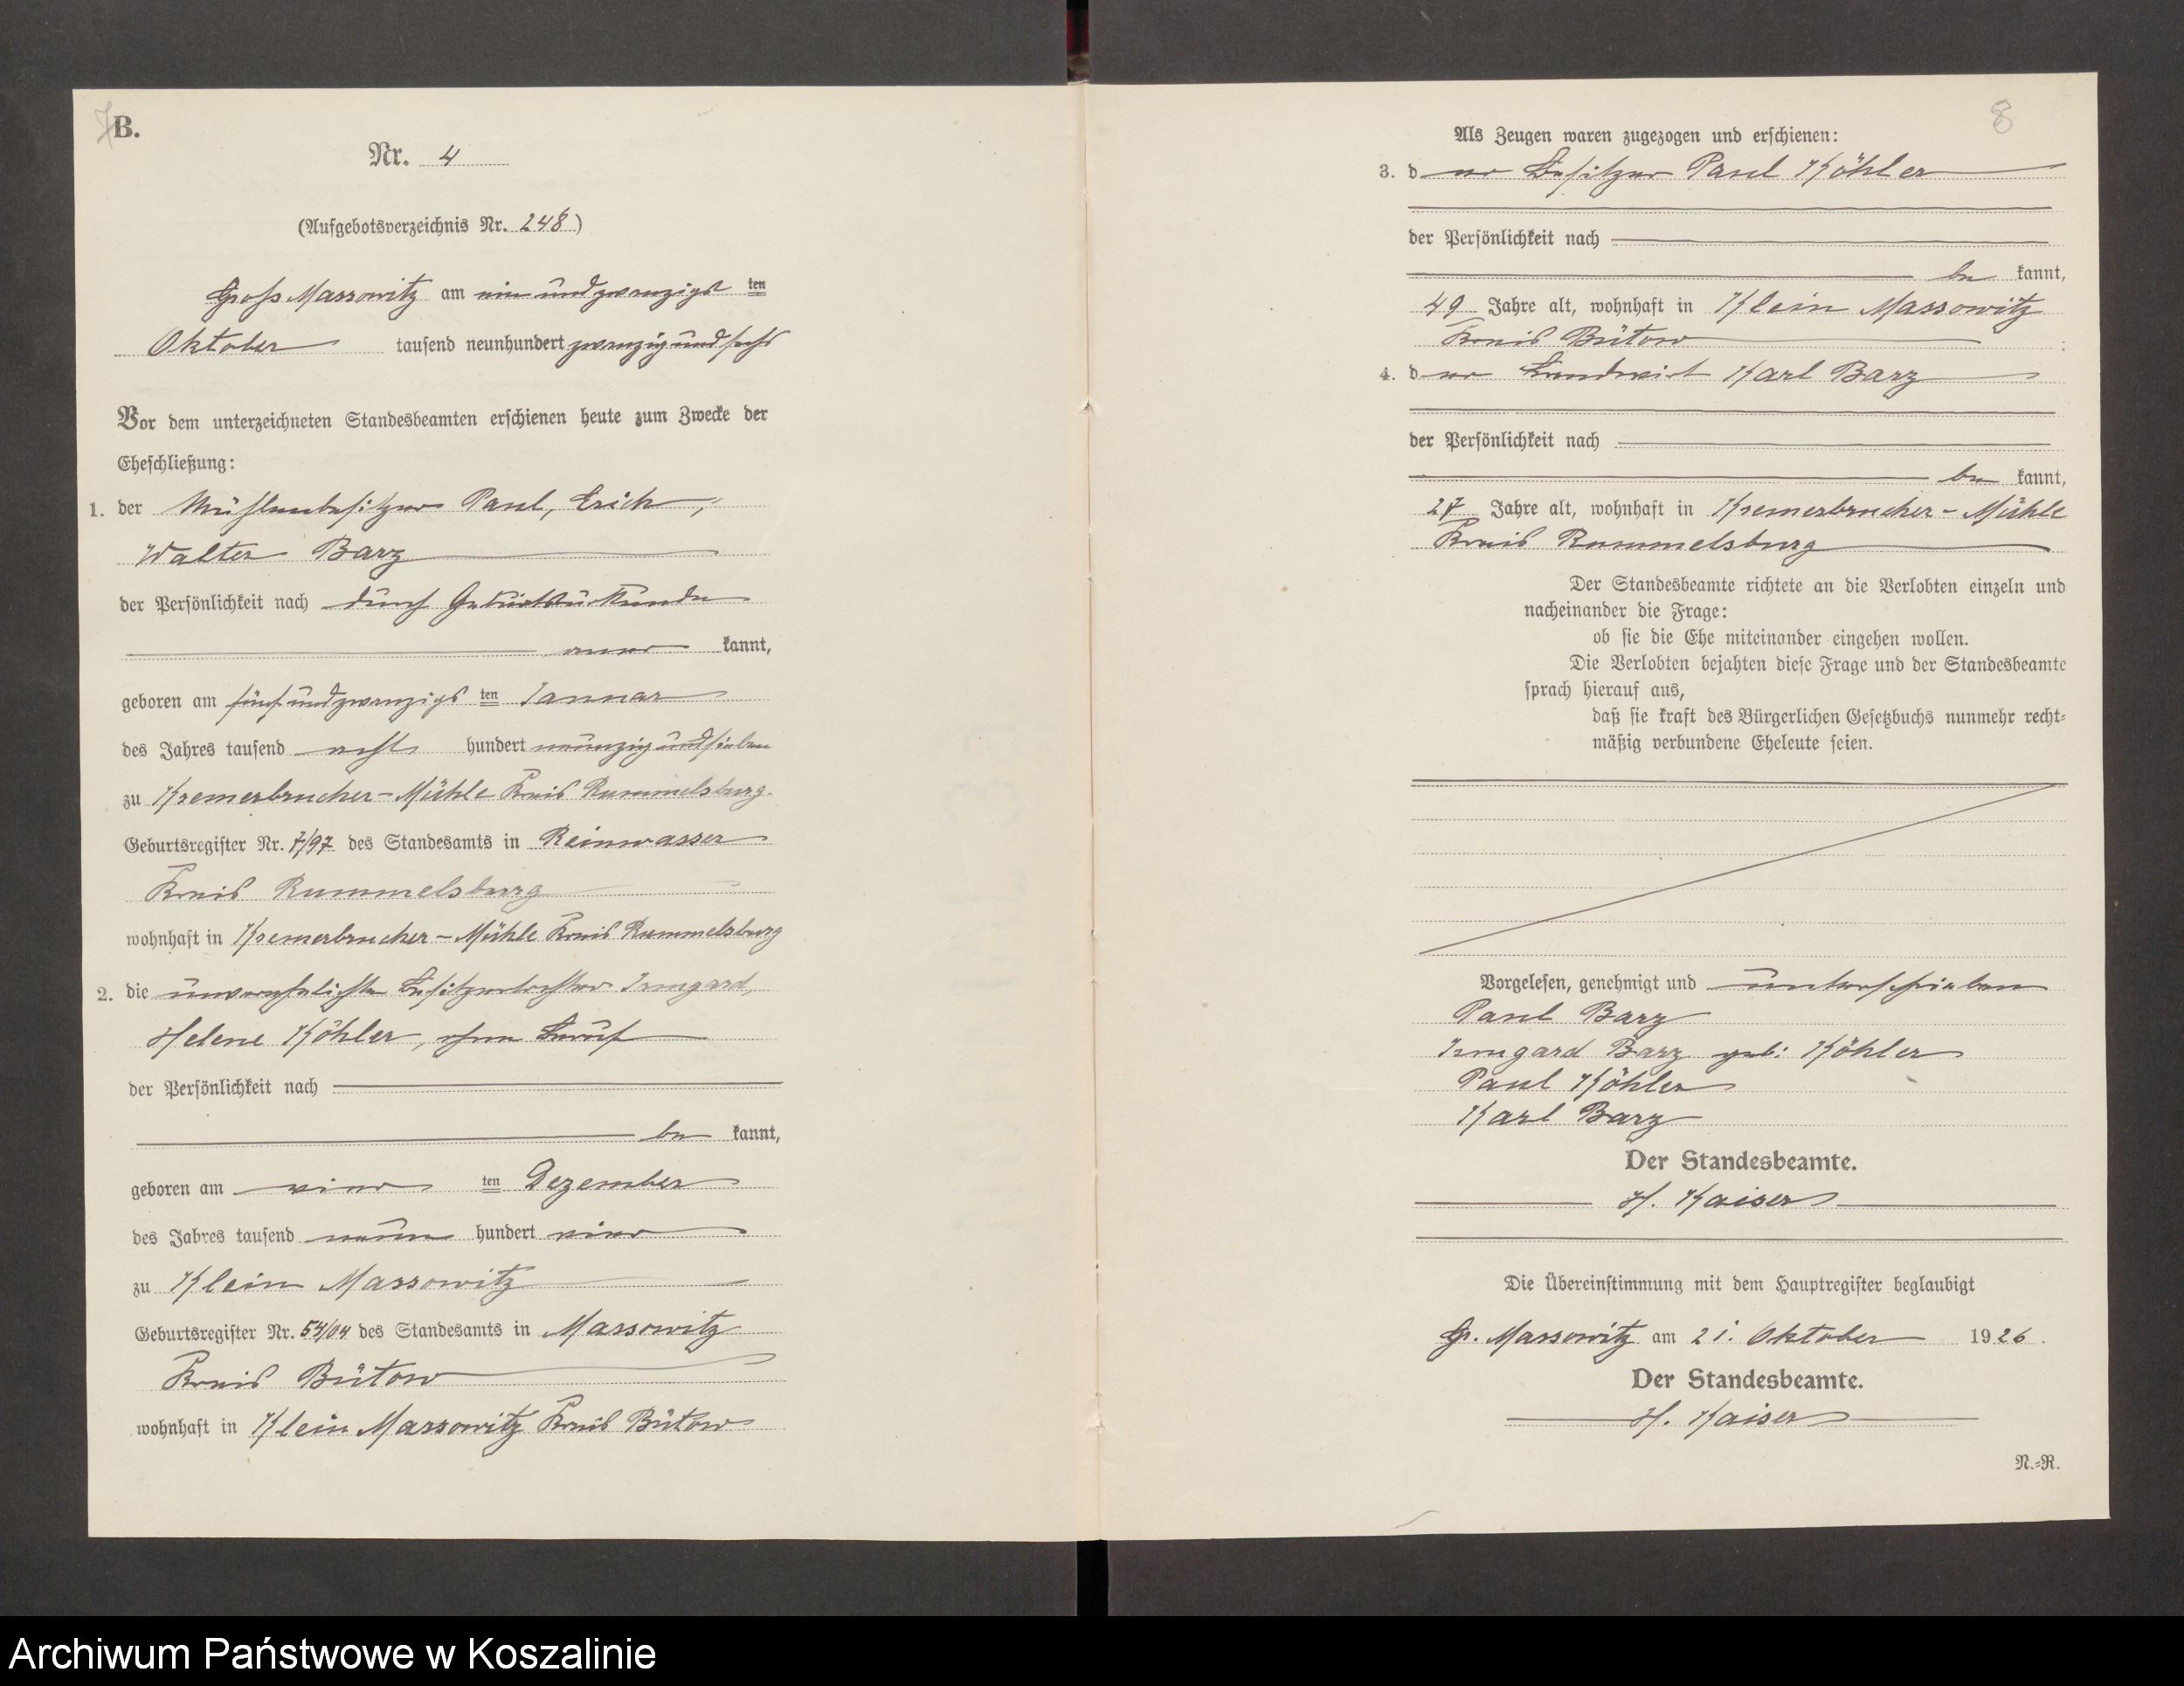 7
B.
Nr. 4
(Aufgebotsverzeichnis Nr. 248)
Gross Massowitz am einundzwanzigsten
Oktober tausend neunhundert zwanzigundsechs
Vor dem unterzeichneten Standesbeamten erschienen heute zum Zwecke der
Eheschließung:
1. der Mühlenbesitzer Paul, Erich,
Walter Barz
der Persönlichkeit nach durch Geburtsurkunde
aner kannt,
geboren am fünfundzwanzigsten Januar
des Jahres tausend acht hundert neunzigundsieben
zu Kremerbrucher-Mühle Kreis Rummelsburg.
Geburtsregister Nr. 7/97 des Standesamts in Reinwasser
Kreis Rummelsburg
wohnhaft in Kremerbrucher-Mühle Kreis Rummelsburg
2. die unverehelichte Besitzertochter Irmgard,
Helene Köhler, ohne Beruf
der Persönlichkeit nach
be kannt,
geboren am vier ten Dezember
des Jahres tausend neun hundert vier
zu Klein Massowitz
Geburtsregister Nr. 54/04 des Standesamts in Massowitz
Kreis Bütow
wohnhaft in Klein Massowitz Kreis Bütow
8
Als Zeugen waren zugezogen und erschienen:
3. der Besitzer Paul Köhler
der Persönlichkeit nach
be kannt,
49 Jahre alt, wohnhaft in Klein Massowitz
Kreis Bütow ;
4. der Landwirt Karl Barz
der Persönlichkeit nach
be kannt,
27 Jahre alt, wohnhaft in Kremerbrucher-Mühle
Kreis Rummelsburg
Der Standesbeamte richtete an die Verlobten einzeln und
nacheinander die Frage:
ob sie die Ehe miteinander eingehen wollen.
Die Verlobten bejahten diese Frage und der Standesbeamte
sprach hierauf aus,
daß sie kraft des Bürgerlichen Gesetzbuchs nunmehr recht-
mäßig verbundene Eheleute seien.
Vorgelesen, genehmigt und unterschrieben
Paul Barz
Irmgard Barz geb. Köhler
Paul Köhler
Karl Barz
Der Standesbeamte.
H. Kaiser
Die Übereinstimmung mit dem Hauptregister beglaubigt
Gr. Massowitz am 21. Oktober 1926.
Der Standesbeamte.
H. Kaiser
N.-R.
Archiwum Państwowe w Koszalinie